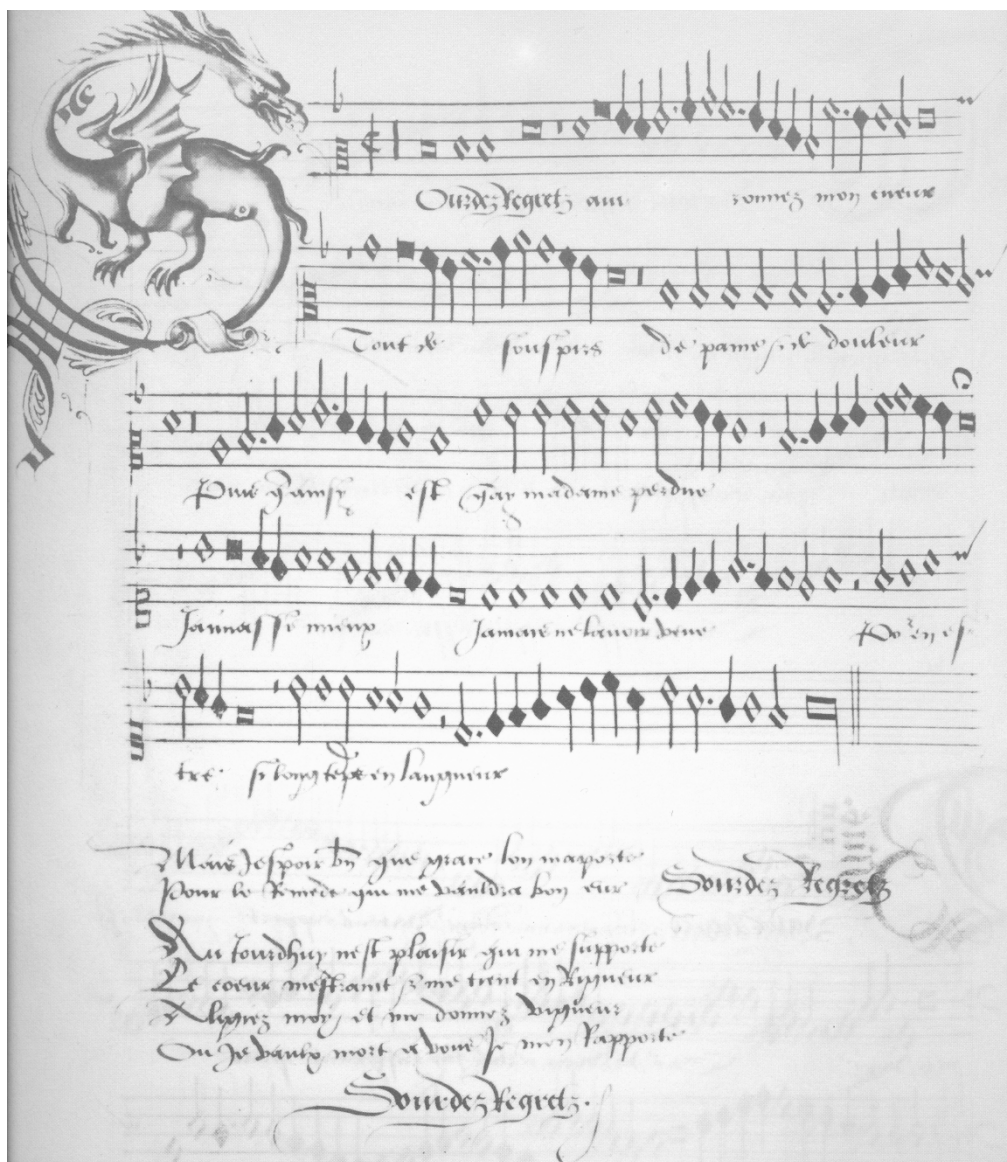 Ourdez Regretz aui ronnez mon cueur
Tout de souspirs de paine & de douleur
Puis quainsy est q̃ ay madame perdue
Jaimasse mieux Jamais ne lavoir veue Po² en es
tre si long temps en langueur
Mais Jespoir bñ que grace lon maporte
Pour le Remede qui me vauldra bon eur Sourdez Regretz
Au Jourdhuy nest plaisir qui me supporte
Le coeur mestraint & me tient en Rigueur
Aligiez moy et me donnez vigueur
Ou Je vaulx mort a vous Je men Rapporte
Sourdez Regretz.